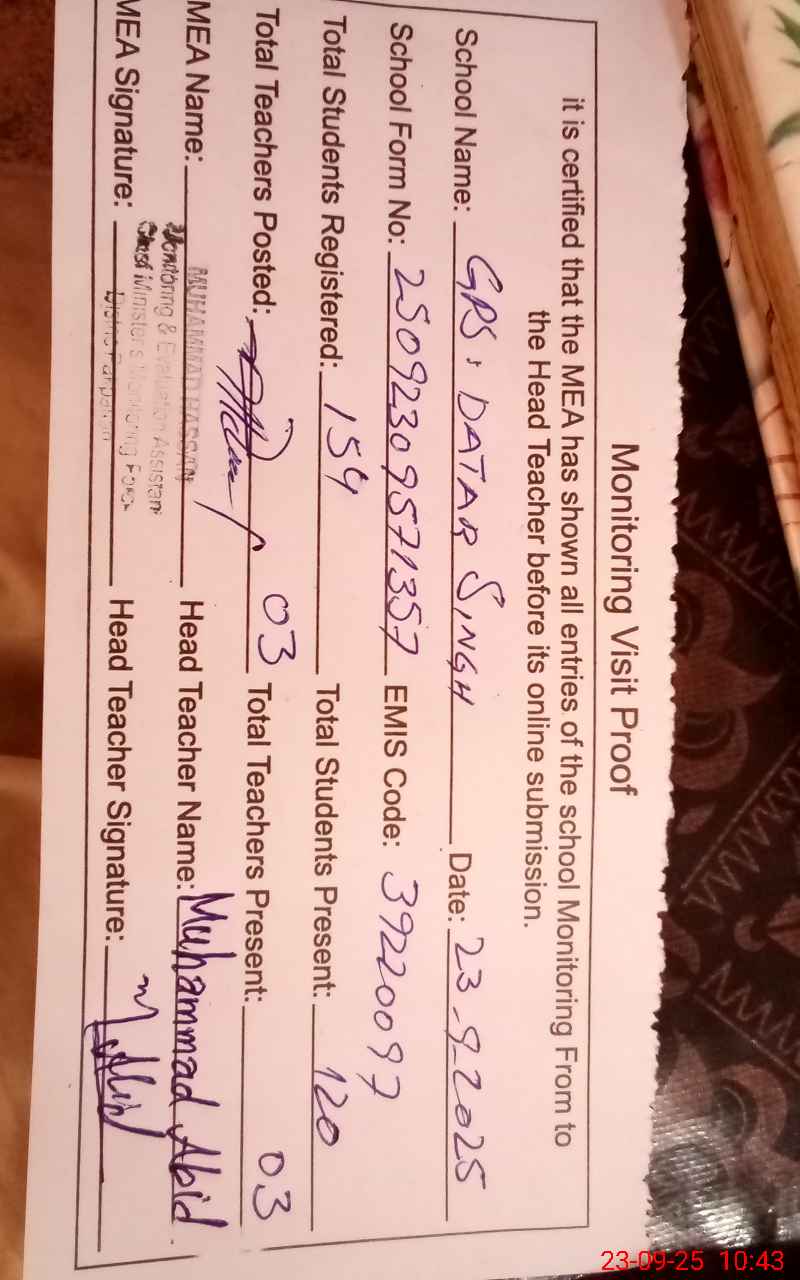 Monitoring Visit Proof
it is certified that the MEA has shown all entries of the school Monitoring From to
the Head Teacher before its online submission.
School Name: GPS: DATAR SINGH Date: 23-9-2025
School Form No: 25092309571357 EMIS Code: 39220097
Total Students Registered: 154 Total Students Present: 120
Total Teachers Posted: 03 Total Teachers Present: 03
MEA Name: MUHAMMAD HASSAN Head Teacher Name: Muhammad Abid
Monitoring & Evaluation Assistant
Chief Minister's Monitoring Force
District Pakpattan
MEA Signature: Head Teacher Signature: M Abid
23-09-25 10:43